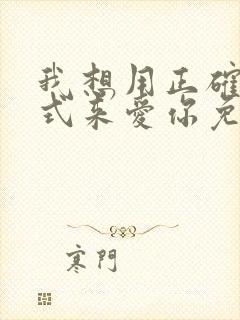 我想用正確
式来愛你免
寒門